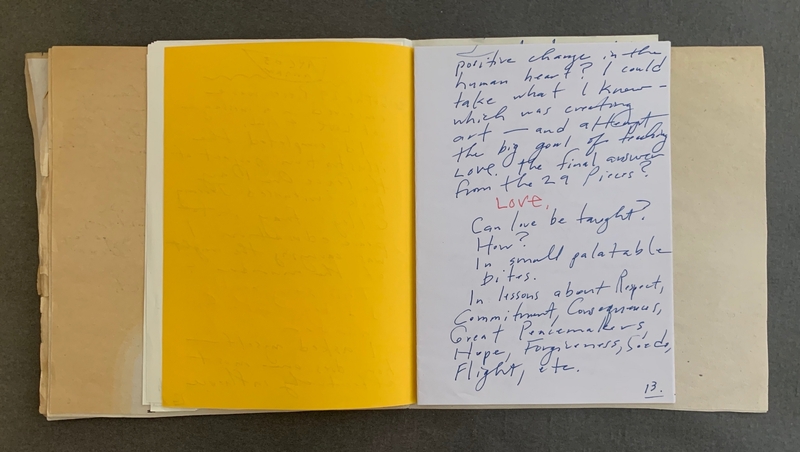 positive change in the
human heart? I could
take what I know —
which was creating
art — and attempt
the big goal of teaching
Love. The final answer
from the 29 Pieces?
LOVE.
Can love be taught?
How?
In small palatable
bites.
In lessons about Respect,
Commitment, Consequences,
Great Peacemakers,
Hope, Forgiveness, Seeds,
Flight, etc.
13.